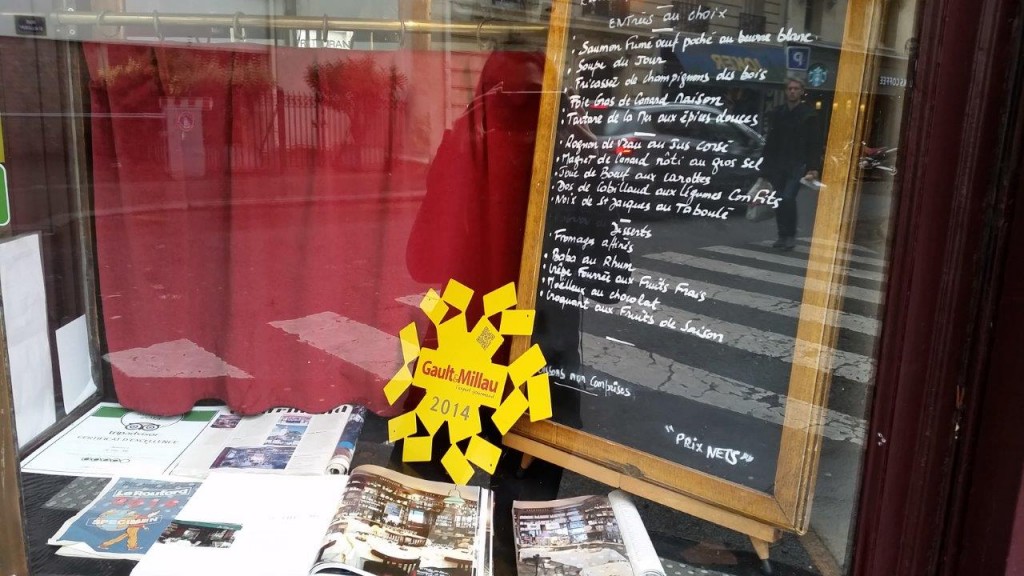 ENTRÉES au choix
• Saumon Fumé œuf poché au beurre blanc
• Soupe du Jour
• Fricassée de champignons des bois
Foie Gras de Canard Maison
• Tartare de la Mer aux épices douces
• Rognon de Veau au Jus corsé
• Magret de Canard rôti au gros sel
• Joue de Bœuf aux carottes
• Dos de Cabillaud aux légumes Confits
• Noix de St Jacques au Taboulé
Desserts
• Fromages affinés
• Baba au Rhum
• Crêpe Fourrée aux Fruits Frais
• Moelleux au chocolat
• Croquant aux Fruits de Saison
non Comprises
"PRIX NETS"
Gault&Millau
2014
tripadvisor
Le Routard
SPECIMEN
P
STARBUCKS
COFFEE